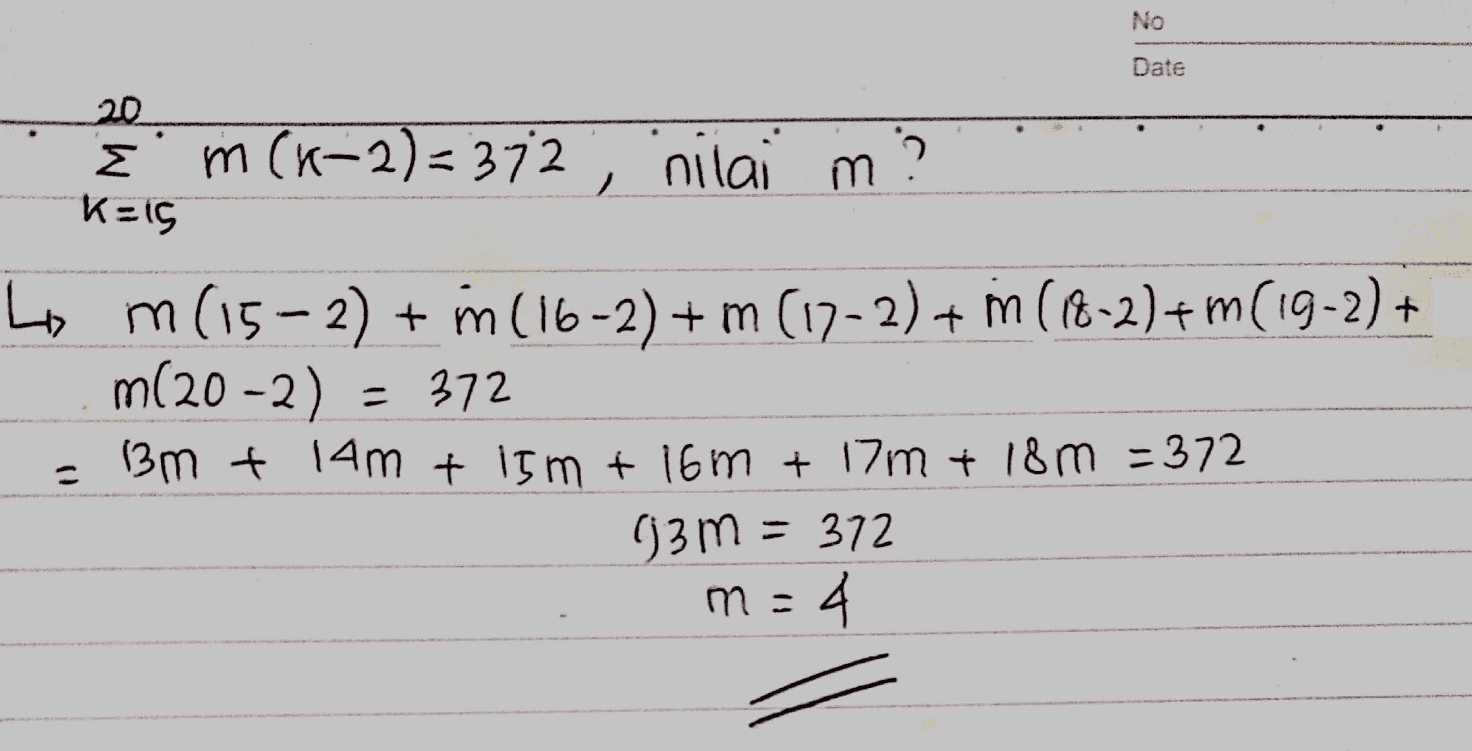 No
Date
20
Σ m (k-2) = 372, nilai m?
k=15
↳ m (15-2) + m (16-2) + m (17-2) + m (18-2) + m (19-2) +
m(20-2) = 372
= 13m + 14m + 15m + 16m + 17m + 18m = 372
93m = 372
m = 4